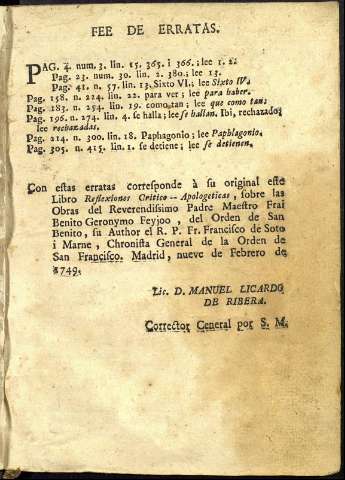 FEE DE ERRATAS.
PAG. 4. num. 3. lin. 15. 365. i 366.; lee 1. 2.
Pag. 23. num. 30. lin. 2. 380.; lee 13.
Pag. 41. n. 57. lin. 13. Sixto VI.; lee Sixto IV.
Pag. 158. n. 224. lin. 22. para ver; lee para haber.
Pag. 183. n. 254. lin. 19. como tan; lee que como tan;
Pag. 196. n. 274. lin. 4. se halla; lee se hallan. Ibi, rechazados
lee rechazadas.
Pag. 214. n. 300. lin. 18. Paphagonio; lee Paphlagonio.
Pag. 305. n. 415. lin. 1. se detiene; lee se detienen.
Con estas erratas corresponde à su original este
Libro Reflexiones Critico -- Apologeticas, sobre las
Obras del Reverendissimo Padre Maestro Frai
Benito Geronymo Feyjoo, del Orden de San
Benito, su Author el R. P. Fr. Francisco de Soto
i Marne, Chronista General de la Orden de
San Francisco. Madrid, nueve de Febrero de
1749.
Lic. D. MANUEL LICARDO
DE RIBERA.
Corrector General por S. M.